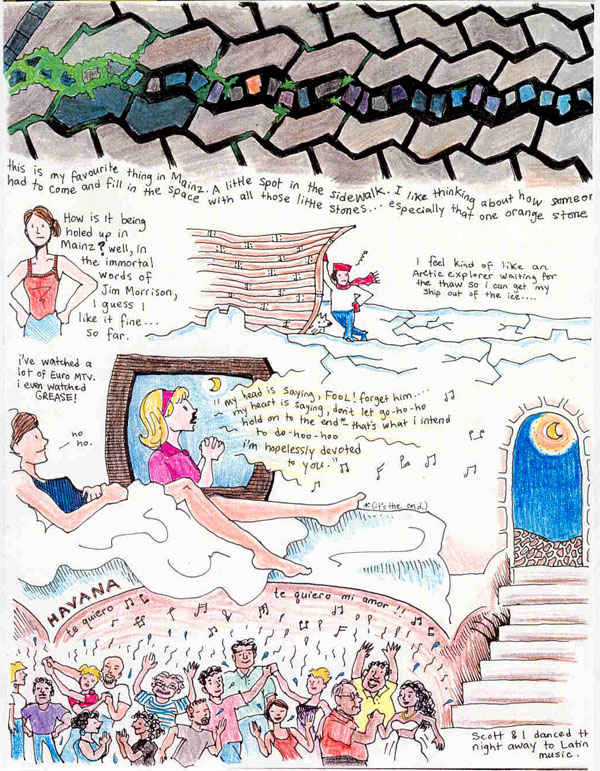 this is my favourite thing in Mainz. A little spot in the sidewalk. I like thinking about how someor
had to come and fill in the space with all those little stones... especially that one orange stone
How is it being
holed up in
Mainz? well, in
the immortal
words of
Jim Morrison,
I guess I
like it fine...
so far.
i feel kind of like an
Arctic explorer waiting for
the thaw so i can get my
ship out of the ice....
i've watched a
lot of Euro MTV.
i even watched
GREASE!
no
ho.
"my head is saying, FOOL! forget him....
my heart is saying, don't let go-ho-ho
hold on to the end* that's what i intend
to do-hoo-hoo
i'm hopelessly devoted
to you."
*(it's the end.)
HAVANA
te quiero
te quiero mi amor!!
Scott & I danced th
night away to Latin
music.